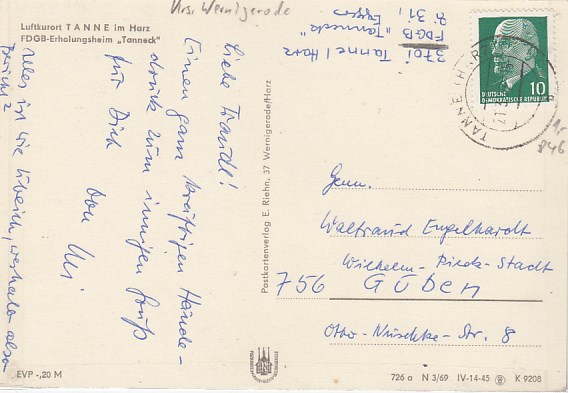 Krs. Wernigerode
Luftkurort TANNE im Harz
FDGB-Erholungsheim „Tanneck“
3701 Tanne / Harz
FDGB "Tanneck"
Zi. 31,
DEUTSCHE
DEMOKRATISCHE REPUBLIK
10
TANNE (HARZ)
Liebe Traudl!
Einen ganz kräftigen Hände-
druck zum innigen Gruß
für Dich
von Uli
Alles ist wie üblich, weshalb also
Bericht?
Postkartenverlag E. Riehn, 37 Wernigerode/Harz
Genn.
Waltraud Engelhardt
Wilhelm-Pieck-Stadt
756 Guben
Otto-Nuschke-Str. 8
846
EVP -,20 M
726 a N 3/69 IV-14-45 K 9208